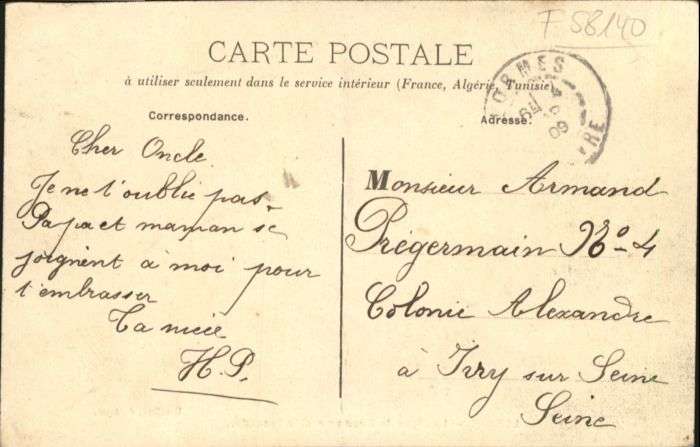 F 58140
CARTE POSTALE
à utiliser seulement dans le service intérieur (France, Algérie, Tunisie)
Correspondance.
Adresse.
Cher Oncle
Je ne t'oublie pas.
Papa et maman se
joignent à moi pour
t'embrasser
Ta nièce
H.P.
Monsieur Armand
Prégermain Nº 4
Colonie Alexandre
à Ivry sur Seine
Seine
ORMES
09